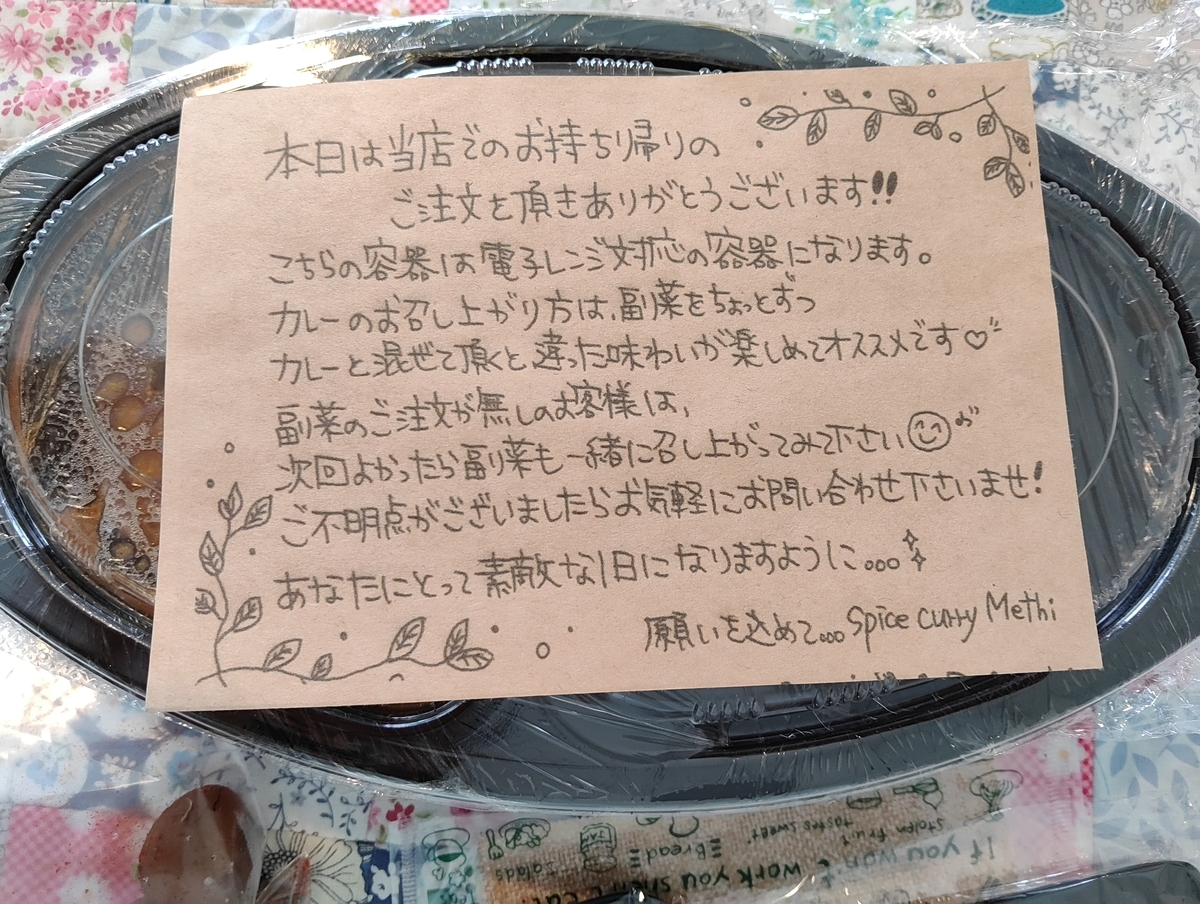 本日は当店でのお持ち帰りの
ご注文を頂きありがとうございます!!
こちらの容器は電子レンジ対応の容器になります。
カレーのお召し上がり方は、副菜をちょっとずつ
カレーと混ぜて頂くと違った味わいが楽しめてオススメです♡
副菜のご注文が無しのお客様は、
次回よかったら副菜も一緒に召し上がってみて下さい
ご不明点がございましたらお気軽にお問い合わせ下さいませ!
あなたにとって素敵な1日になりますように...
願いを込めて... Spice curry Methi
If you won't
work you shan't eat.
stolen fruit
tastes sweet
Bread
Salads